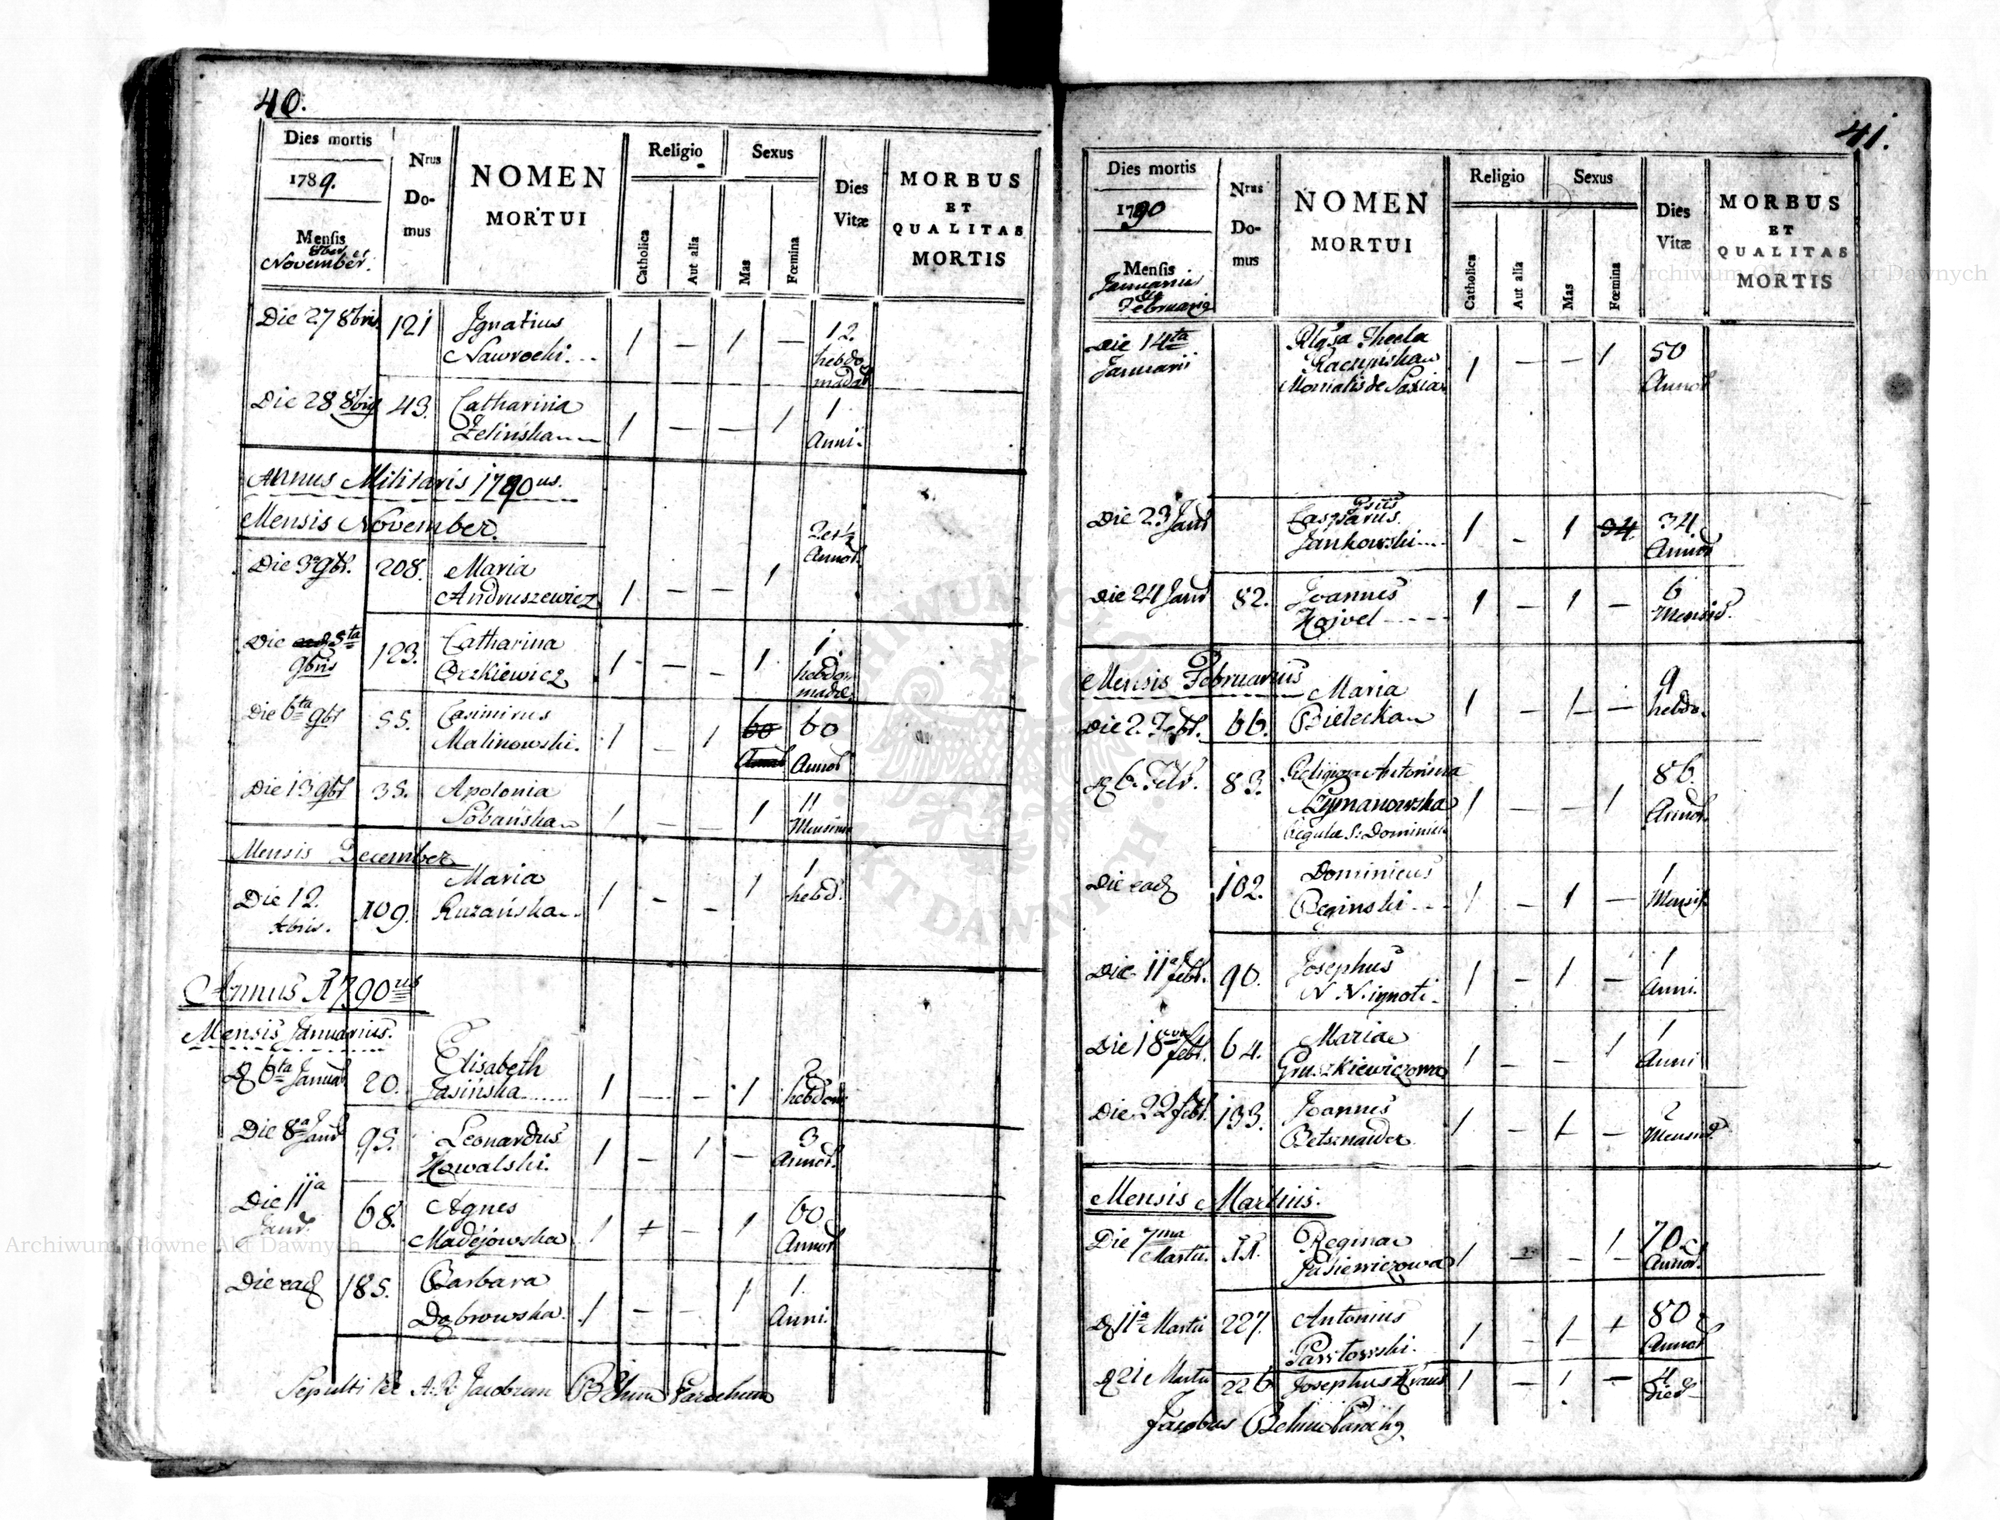 40.
Dies mortis
1789.
Mensis
8ber et
November.
Nrus
Do-
mus
NOMEN
MORTUI
Religio
Catholica
Aut alia
Sexus
Mas
Fœmina
Dies
Vitæ
MORBUS
ET
QUALITAS
MORTIS
Die 27 8bris 121 Ignatius 1 — 1 — 12.
Nawrocki. hebdo
madar
Die 28 8bris 43. Catharina 1 — — 1 1
Zelińska Anni.
Annus Militaris 1790us.
Mensis November.
Die 3 9br. 208. Maria 1 — — 1 2 et ½
Andruszewicz Annor.
Die 5ta 123. Catharina 1 — — 1 1
9bris hebdo
madæ
Die 6ta 9br 55. Casimirus 1 — 1 60 60
Malinowski. Annor Annor
Die 13 9br 35. Apolonia 1 — — 1 11
Sobańska Mensium
Mensis December
Die 12. 109. Maria 1 — — 1 1
Xbris. Ruzańska hebd.
Annus 1790us
Mensis Januarius.
D 6ta Januar 20. Elisabeth 1 — — 1 2
Jasińska hebdom
Die 8a Janu 95. Leonardus 1 — 1 — 3
Kowalski. Annor.
Die 11a 68. Agnes 1 + — 1 60
Janu. Madejowska Annor
Die ead 185. Barbara 1 — — 1 1.
Dąbrowska. Anni.
Sepulti per A. R. Jacobum Böhm Parochum
41.
Dies mortis
1790
Mensis
Januarius
Februarius
Nrus
Do-
mus
NOMEN
MORTUI
Religio
Catholica
Aut alia
Sexus
Mas
Fœmina
Dies
Vitæ
MORBUS
ET
QUALITAS
MORTIS
Die 14ta Thecla 1 — — 1 50
Januarii Annor
Monialis de
Die 23 Janu Casparus 1 — 1 34 34.
Jankowski Annor
Die 24 Janu 82. Joannes 1 — 1 — 6
Mensiū.
Mensis Februarius
Die 2. Febr. 66. Maria 1 — 1 — 9
Bielecka hebdo.
D 6. Febr. 83. Religiosa Antonina 1 — — 1 86.
Szymanowska Annor.
Regulæ S: Dominici
Die ead 102. Dominicus 1 — 1 — 1
Beginski Mensis
Die 11a febr. 90. Josephus 1 — 1 — 1
N. N. ignoti. Anni.
Die 18va febr. 64. Maria 1 — — 1 1
Gruszkiewiczowa Anni
Die 22 febr. 133. Joannes 1 — 1 — 2
Betsznaider Mensiū
Mensis Martius.
Die 7ma Regina 1 — — 1 70
Martii. Annor.
D 11a Martii 227. Antonius 1 — 1 + 80
Pawtowski. Annor
D 21 Martii 226 Josephus Kraus 1 — 1 — 4
Dies
Jacobus Böhm Parochus
Archiwum Główne Akt Dawnych
Archiwum Główne Akt Dawnych
ARCHIWUM GŁÓWNE
AKT DAWNYCH